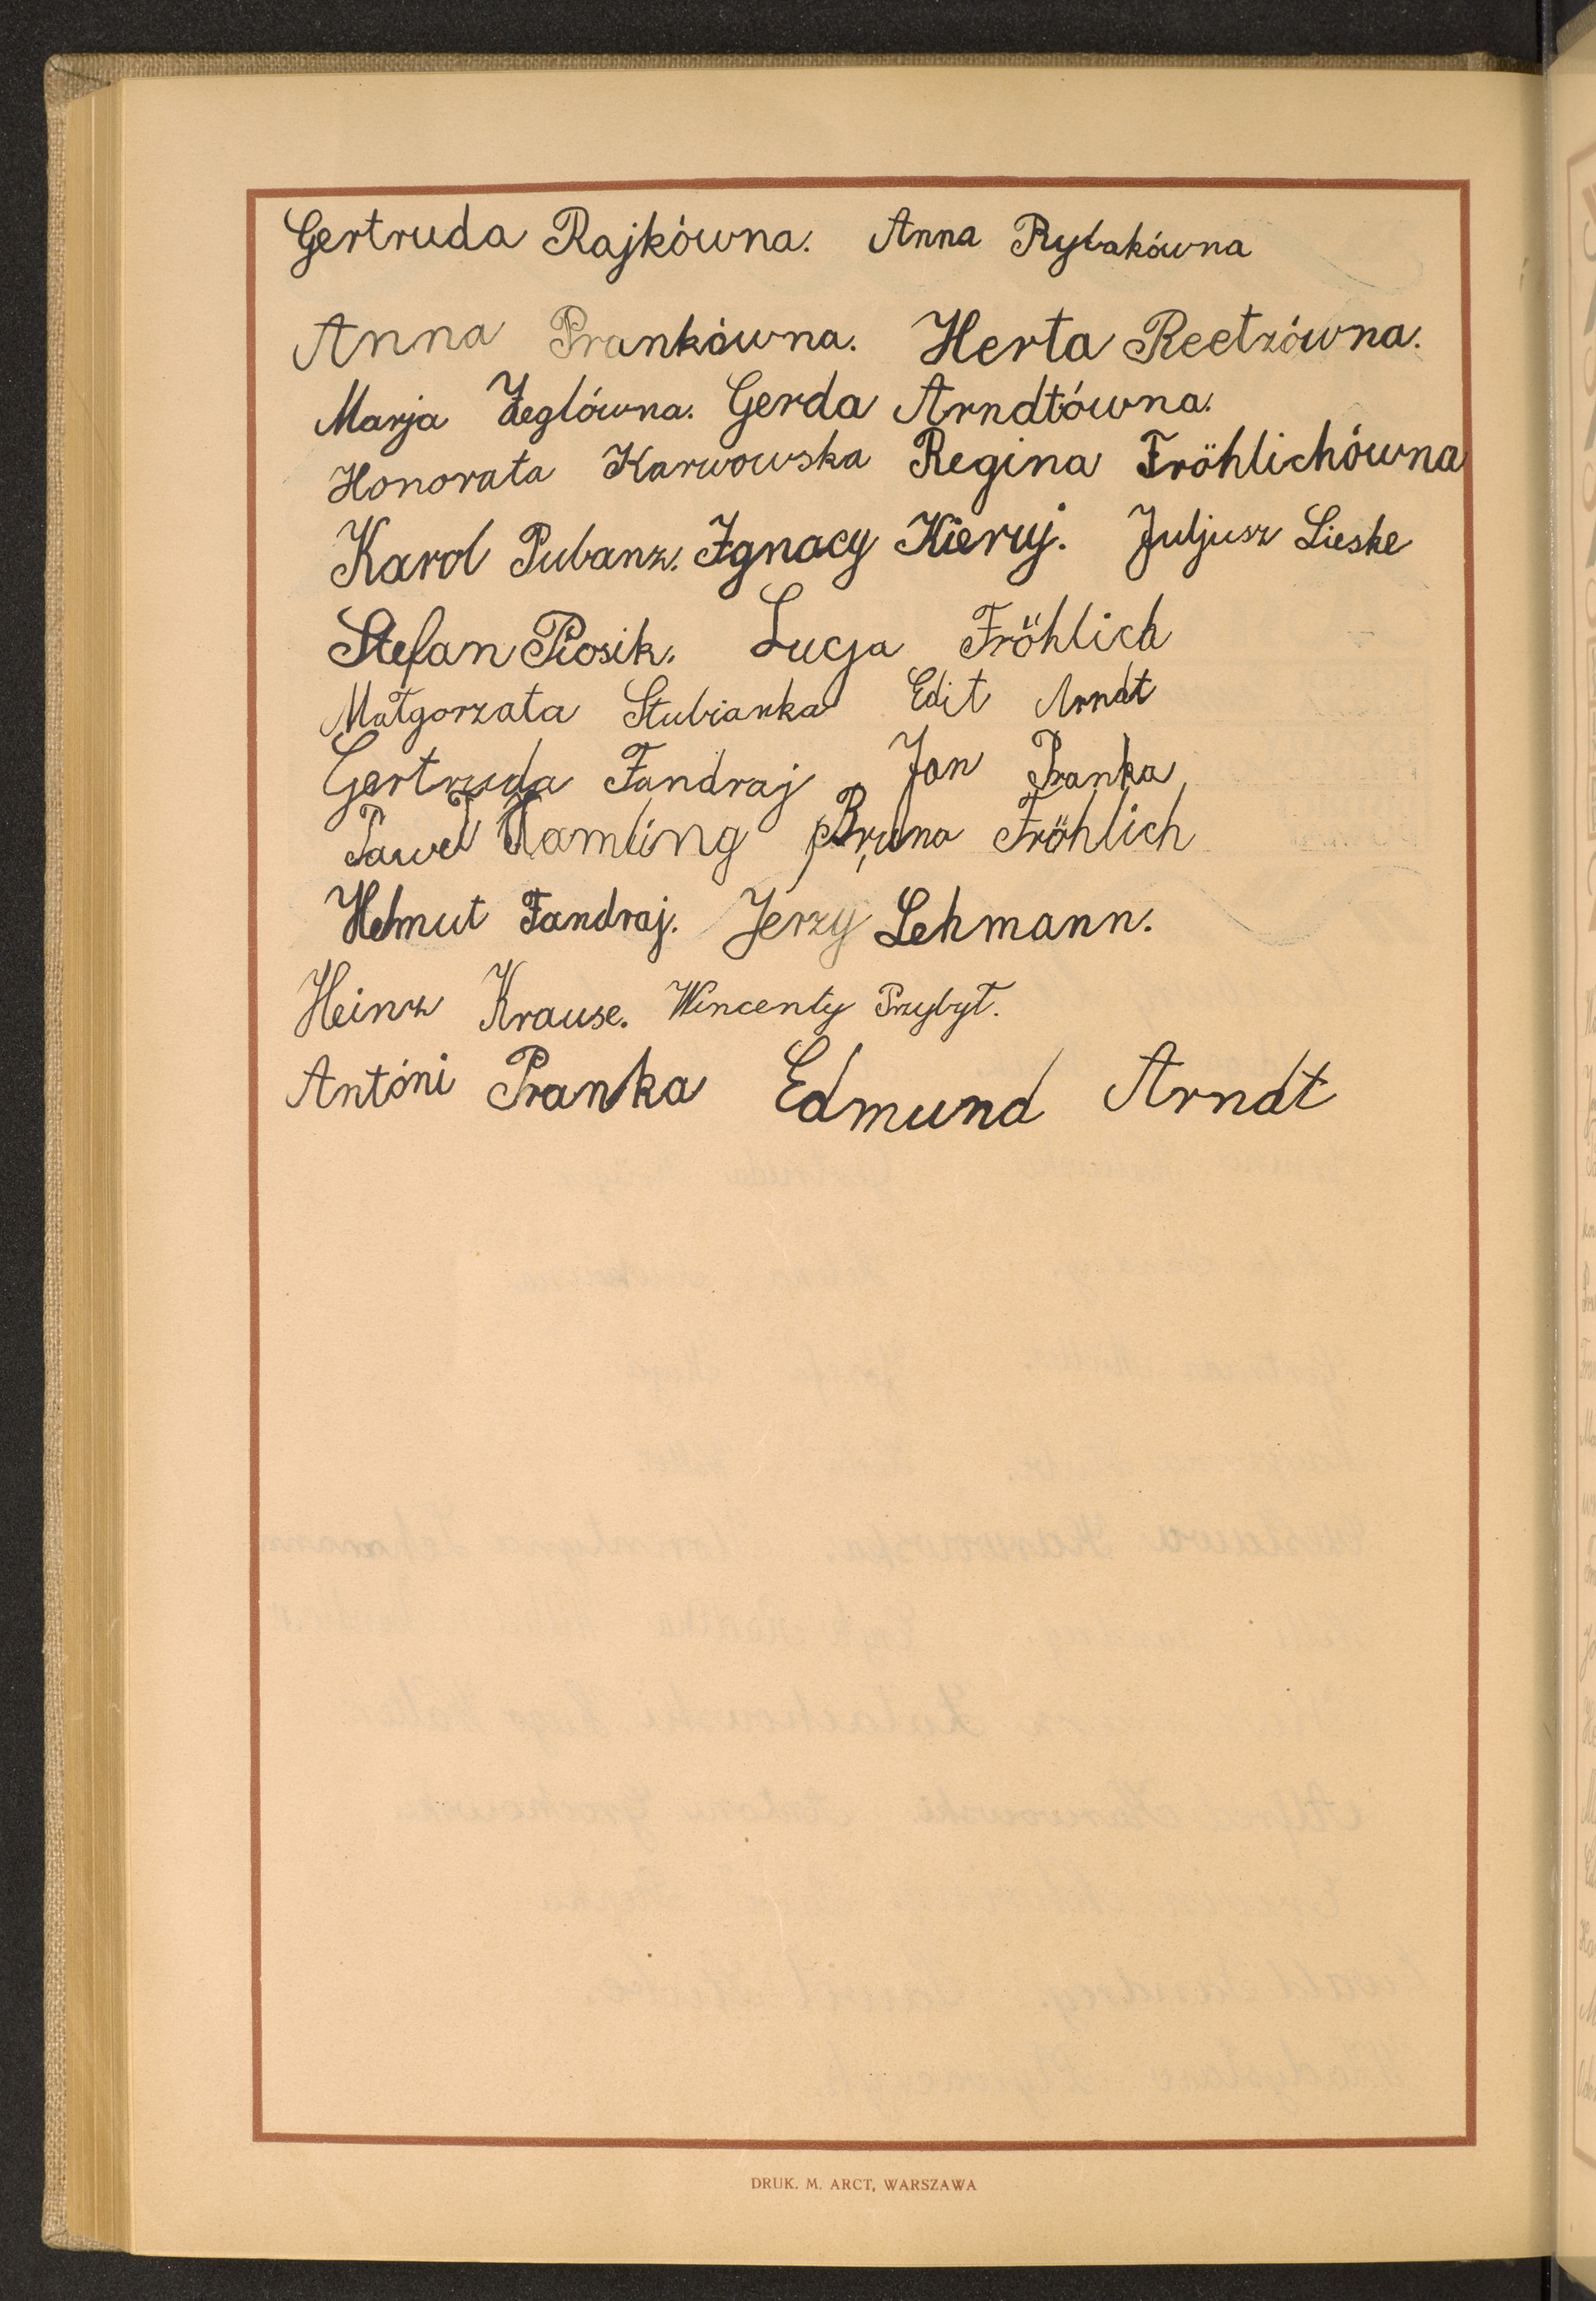 Gertruda Rajkówna. Anna Rybakówna
Anna Prankówna. Herta Reetzówna.
Marja Żeglówna. Gerda Arndtówna.
Honorata Karwowska Regina Fröhlichówna
Karol Pubanz. Ignacy Kieruj. Juljusz Lieske
Stefan Piosik. Łucja Fröhlich
Małgorzata Stubianka Edit Arndt
Gertruda Fandraj Jan Pranka
Paweł Hamling Bruno Fröhlich
Helmut Fandraj. Jerzy Lehmann.
Heinz Krause. Wincenty Przybył.
Antóni Pranka Edmund Arndt
DRUK. M. ARCT, WARSZAWA